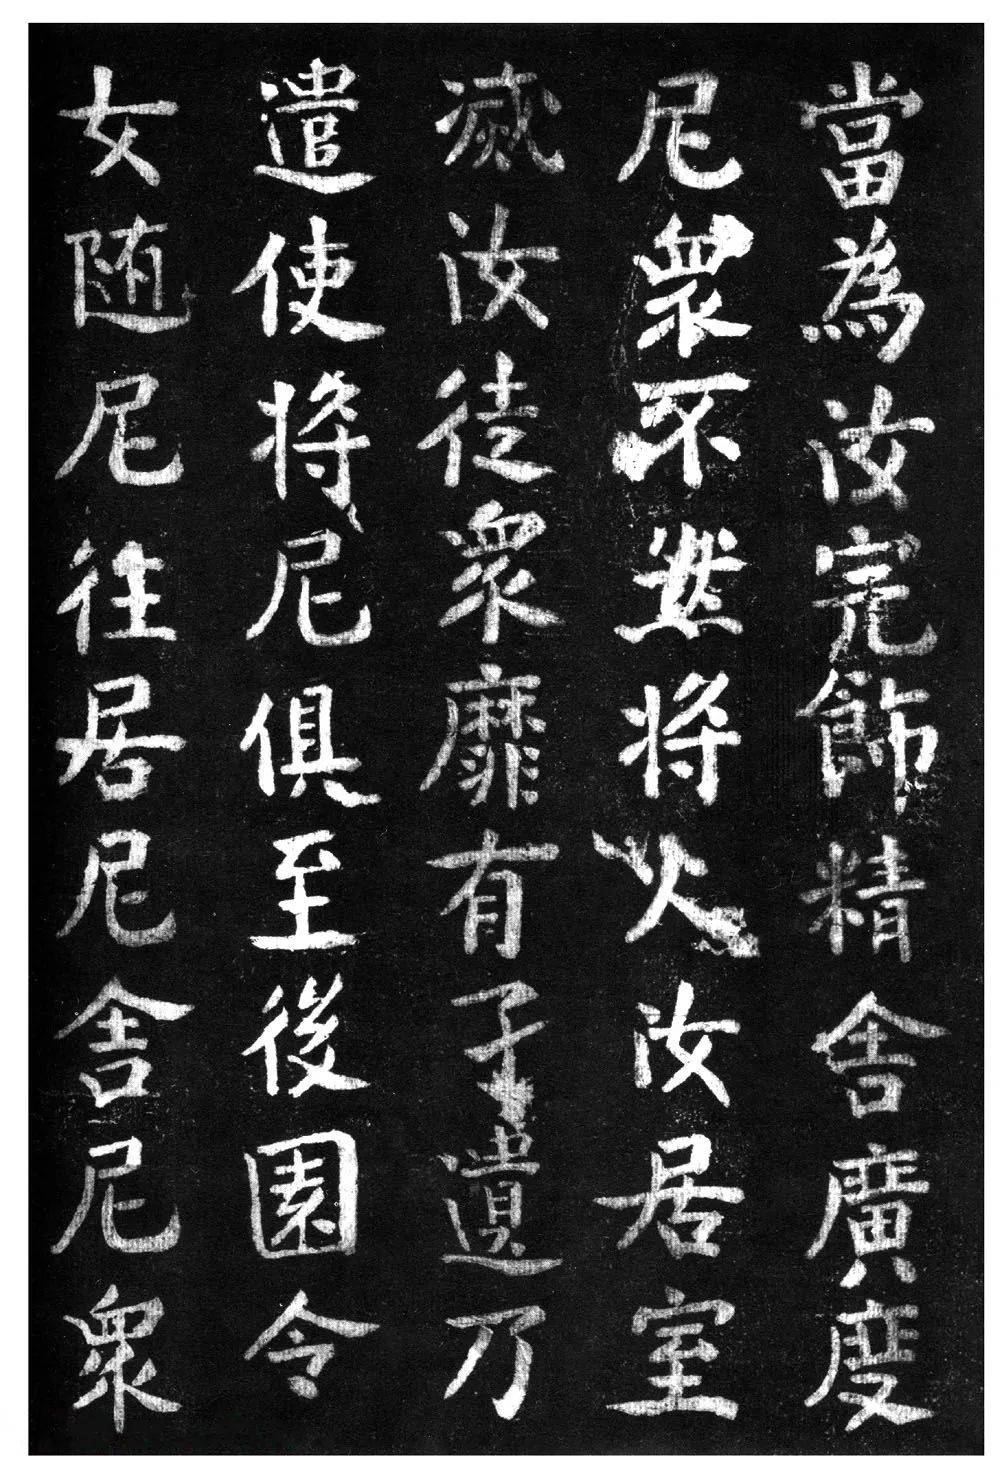 當為汝完飾精舍廣度
尼衆不尔將火汝居室
滅汝徒衆靡有孑遺乃
遣使將尼俱至後園令
女随尼往居尼舍尼衆